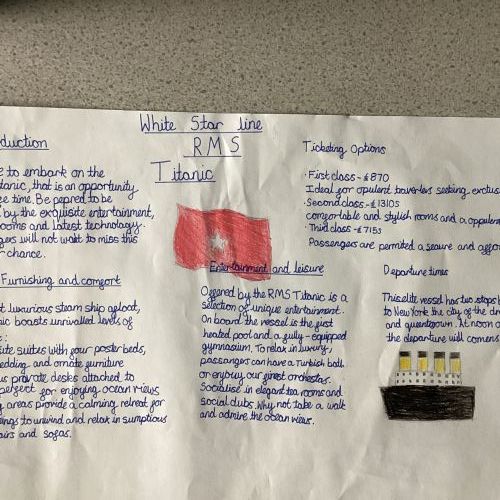 White Star line
RMS
Titanic
duction
e to embark on the
tanic, that is an opportunity
ce time. Be pepred to be
by the exquisite entertainment,
ooms and latest technology.
gers will not wait to miss this
r chance.
Furnishing and comfort
t luxurious steam ship afloat,
nic boasts unrivalled levels of
ite suites with four poster beds,
edding, and ornate furniture
us private desks attached to
perfect for enjoying ocean views
g areas provide a calming retreat for
ings to unwind and relax in sumptious
airs and sofas.
Entertainment and leisure
Offered by the RMS Titanic is a
selection of unique entertainment.
On board the vessel is the first
heated pool and a fully-equipped
gymnasium. To relax in luxury,
passangers can have a Turkish bath
or enjoy our finest orchestras.
Socialise in elegant tea rooms and
social clubs. Why not take a walk
and admire the ocean views.
Ticketing Options
· First class - £870
Ideal for opulent travellers seeking exclus
· Second class - £1310s
comfortable and stylish rooms and a oppulen
· Third class - £715s
Passengers are permited a secure and affor
Departure times
This elite vessel has two stops
to New York the city of the dr
and queentown. At noon o
the departure will comens